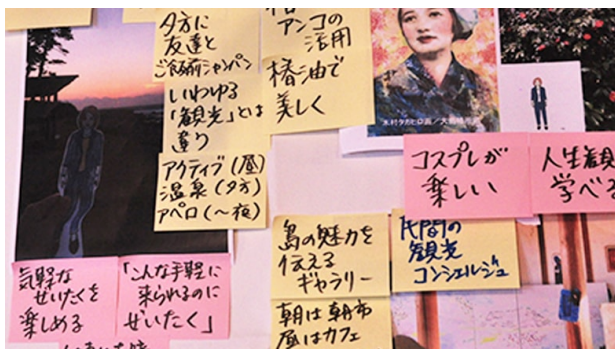 夕方に
友達と
ご飯前シャンパン
いわゆる
「観光」とは
違う
アクティブ(昼)
温泉(夕方)
アペロ(〜夜)
アンコの
活用
椿油で
美しく
木村タカヒロ画/大島椿
コスプレが
楽しい
人生観
学べる
島の魅力を
伝える
ギャラリー
民間の
観光
コンシェルジュ
気軽な
ぜいたくを
楽しめる
「こんな手軽に
来られるのに
ぜいたく」
朝は朝市
昼はカフェ